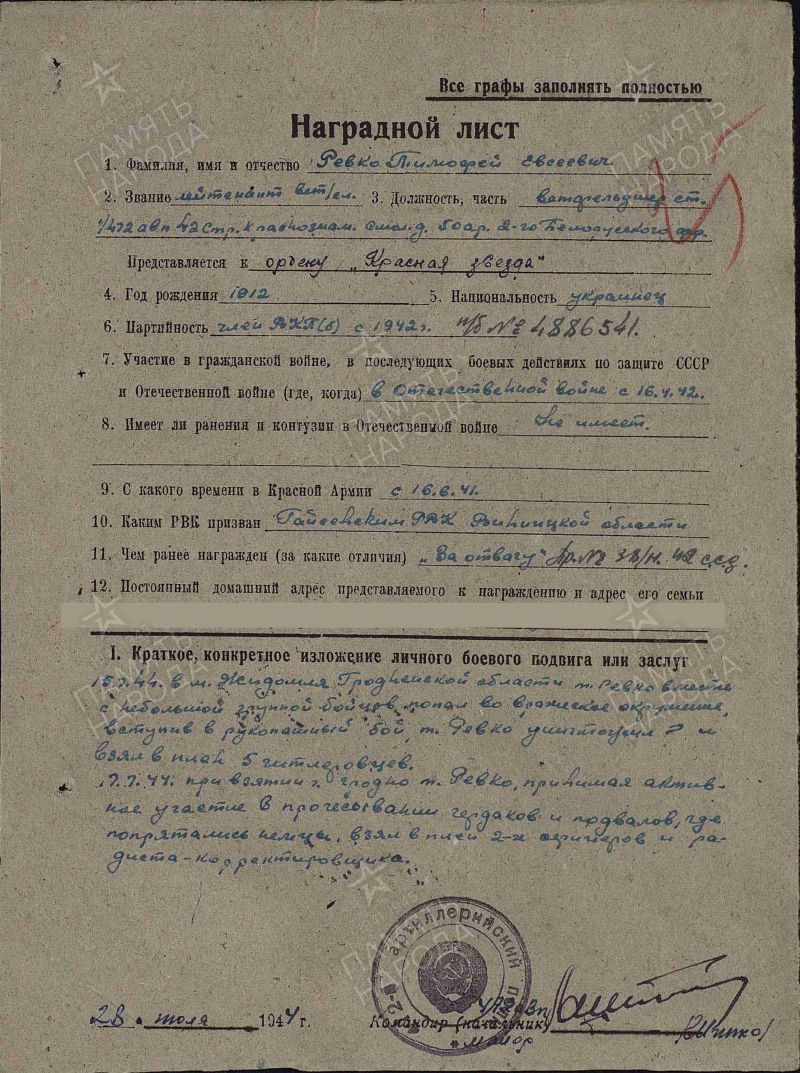 Все графы заполнять полностью
Наградной лист
1. Фамилия, имя и отчество Ревко Тимофей Евсеевич
2. Звание лейтенант вет/сл. 3. Должность, часть ветфельдшер ст.
1/472 авп 42 Стр. Краснознам. Смолд. 50 ар. 2-го Белорусского фр.
Представляется к ордену „Красная звезда"
4. Год рождения 1912 5. Национальность украинец
6. Партийность член ВКП(б) с 1942г. п/б № 4886541.
7. Участие в гражданской войне, в последующих боевых действиях по защите СССР
и Отечественной войне (где, когда) в Отечественной войне с 16.4.42.
8. Имеет ли ранения и контузии в Отечественной войне Не имеет.
9. С какого времени в Красной Армии с 16.6.41.
10. Каким РВК призван Гайсенским РВК Виницкой области
11. Чем ранее награжден (за какие отличия) „За отвагу" Пр.№ 42 ссд.
12. Постоянный домашний адрес представляемого к награждению и адрес его семьи
I. Краткое, конкретное изложение личного боевого подвига или заслуг
15.7.44. в м. Жидомля Гродненской области т. Ревко вместе
с небольшой группой бойцов попал во вражеское окружение,
вступив в рукопашный бой, т. Ревко уничтожил и
взял в плен 5 гитлеровцев.
17.7.44. при взятии г. Гродно т. Ревко, принимая актив-
ное участие в прочесывании чердаков и подвалов, где
попрятались немцы, взял в плен 2-х офицеров и ра-
диста-корректировщика.
артиллерийский
28 июля 1944 г. Командир (начальник)
майор